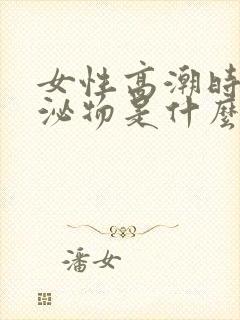 女性高潮時
泌物是什麼
潘女